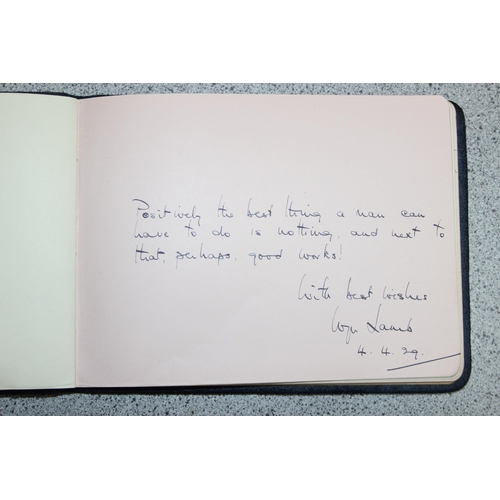 Positively the best thing a man can
have to do is nothing, and next to
that, perhaps, good works!
With best wishes
Lamb
4.4.29.